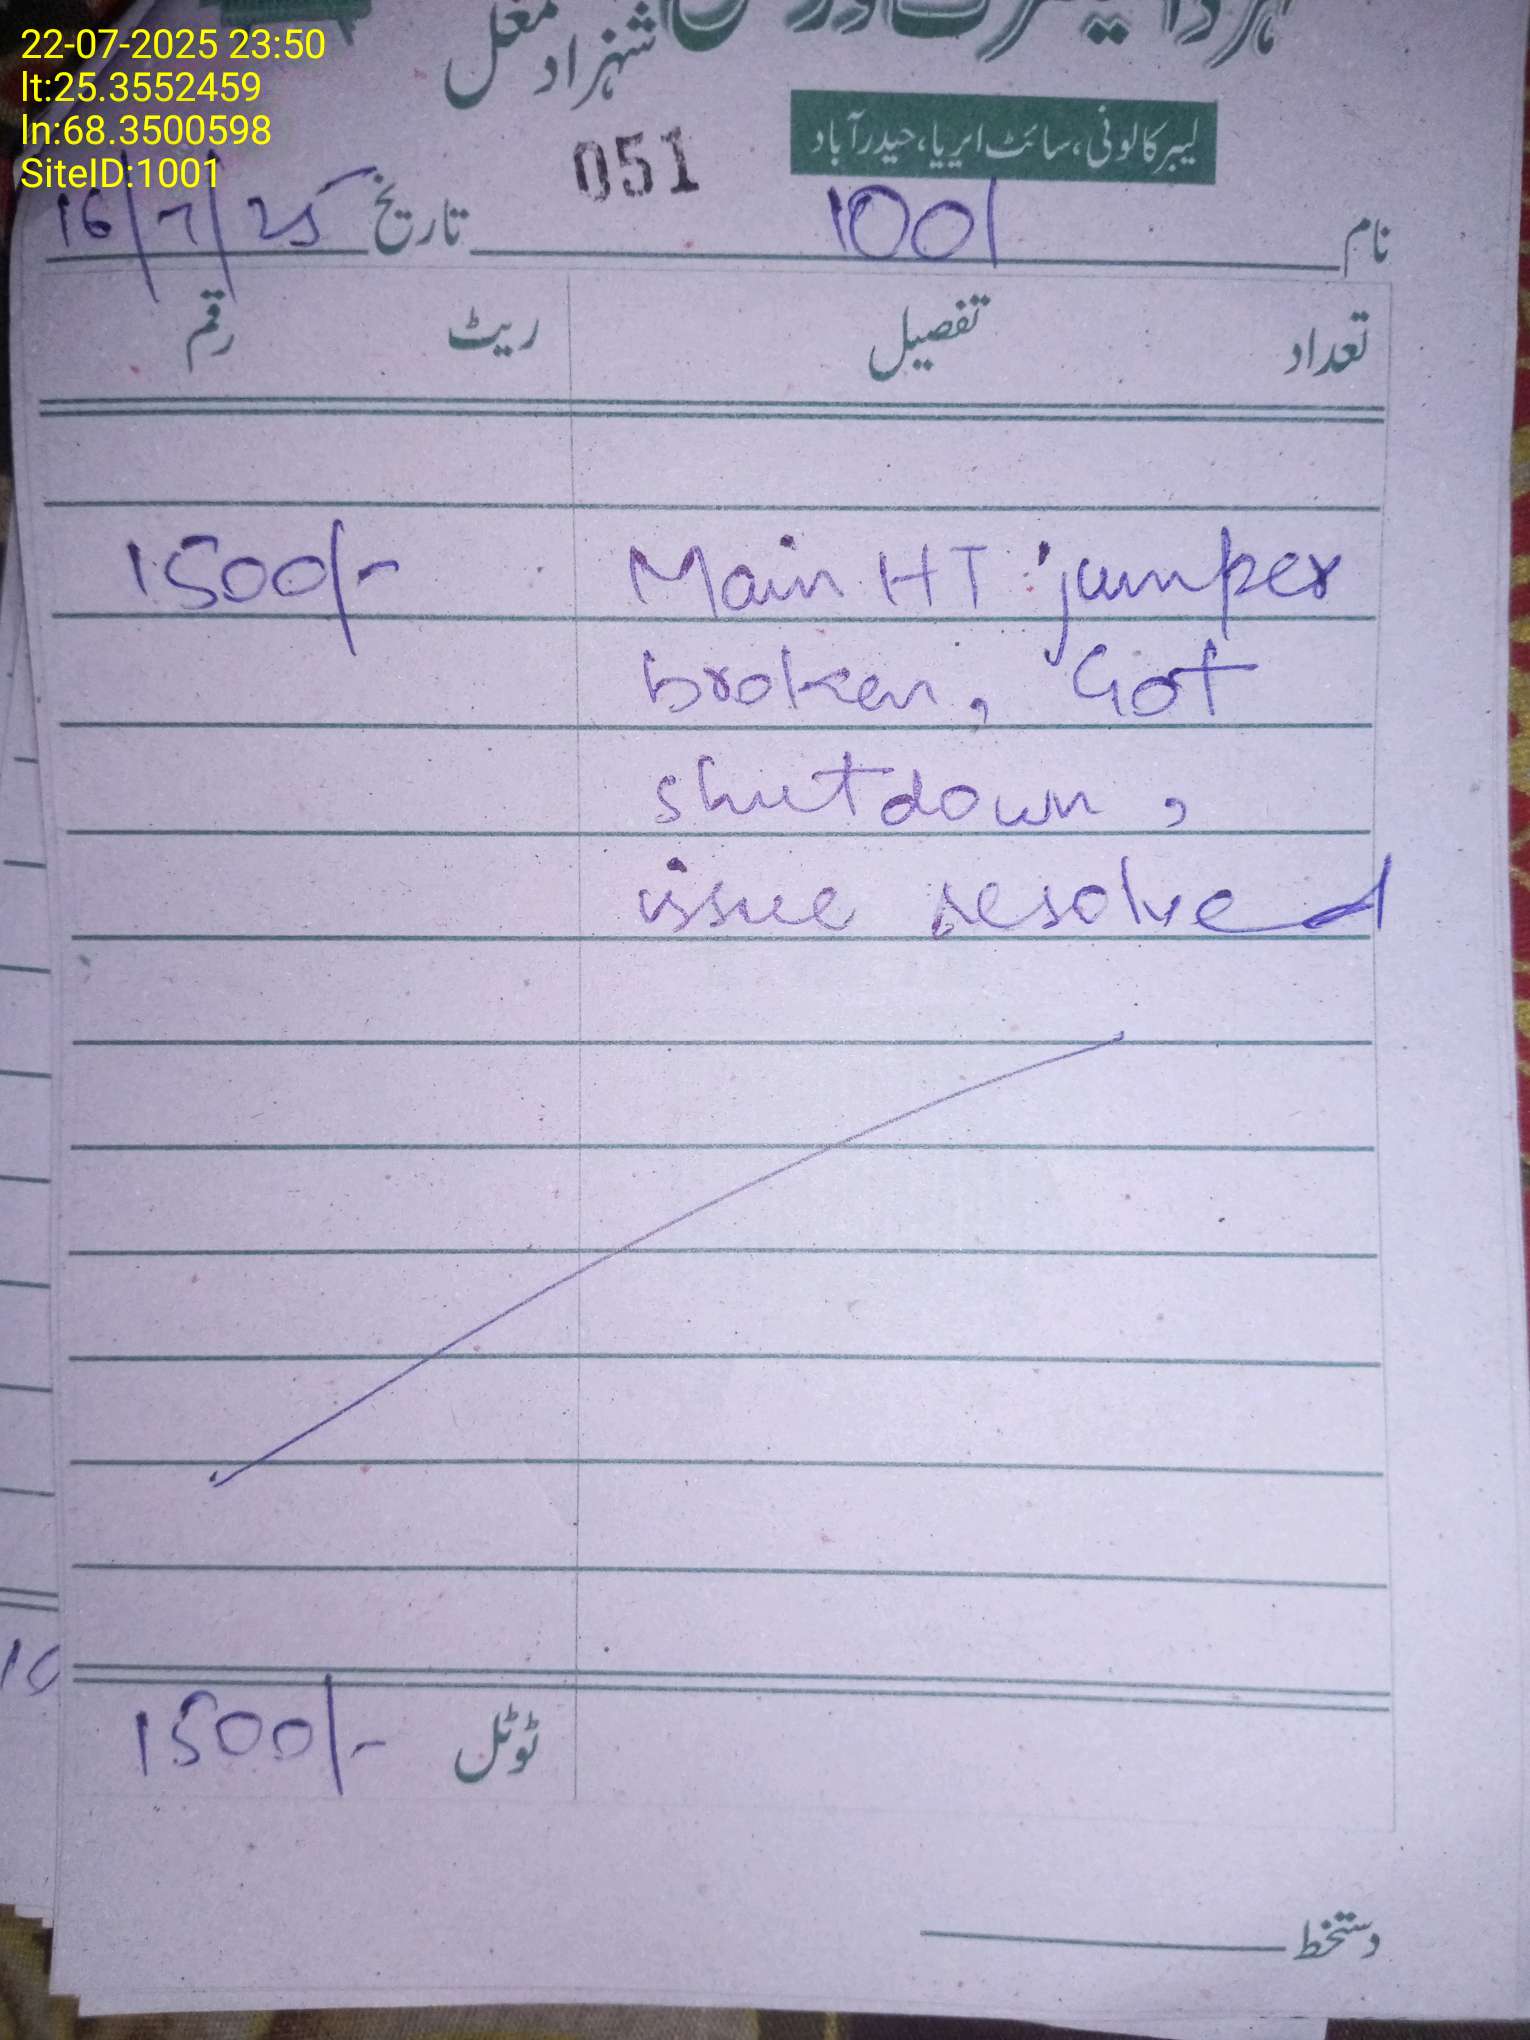 22-07-2025 23:50
lt:25.3552459
ln:68.3500598
SiteID:1001
شہزاد مغل
لیبر کالونی، سائٹ ایریا، حیدرآباد
051
نام 1001 تاریخ 16/7/25
تعداد تفصیل ریٹ رقم
Main HT jumper 1500/-
broken, Got
shutdown,
issue resolved
ٹوٹل 1500/-
دستخط